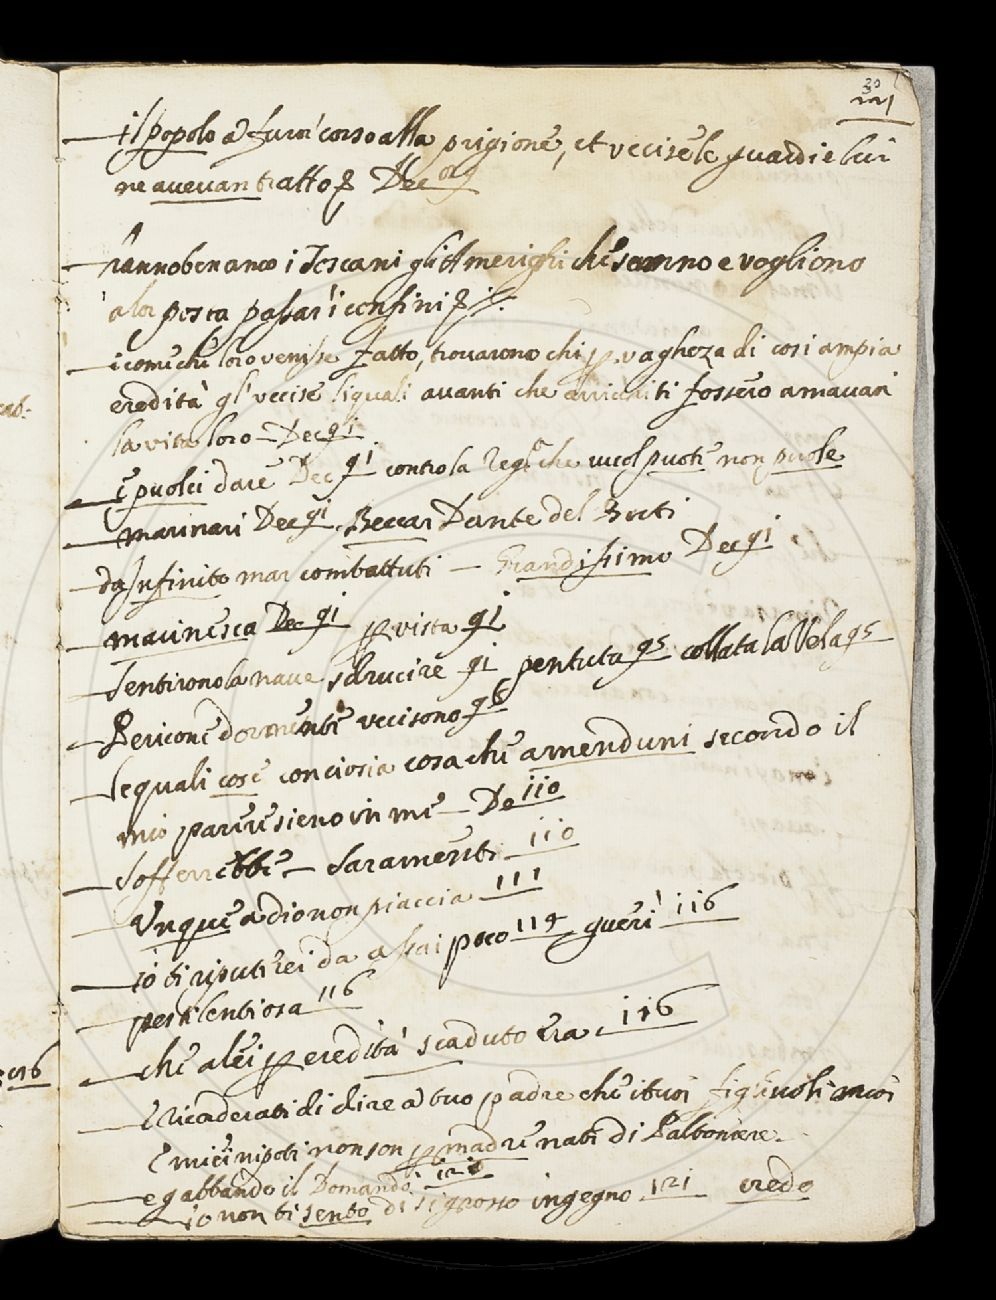 il popolo a furor corso alla prigione, et uccise le guardie lui
ne avevan tratto
hanno benanco i Toscani gli Amerighi che sanno e vogliono
a lor posta passar i confini
i come che loro venisse fatto, trovarono chi p vaghezza di cosi ampia
eredità gl'uccise liquali avanti che arricchiti fossero amavan
la vita loro - Dec 91
È puolci dare Dec 91 contro la Rega che vuol puoti non puole
marinari Dec 91 Beccar Dante del
da Infinito mar combattuti - Grandissimo Dec 91
marinesca Dec 91 p vista 91
Sentirono la nave sdrucire 91 pentuta 95 collata la Vela 95
Pericone dormente uccisono 96
Lequali cose conciosia cosa che amenduni secondo il
mio parere sieno in me - De 110
Sofferrebbe - Saramenti 110
Unque a dio non piaccia 111
io ti riputerei da assai poco 114 gueri 116
pestilentiosa 116
che a lei p eredità scaduto era 116
E ricorderati di dire a tuo padre che i tuoi figliuoli suoi
E miei nipoti non son p madre nati di Paltoniere
e gabbando il Domandò 120
io non ti sento di si grosso ingegno 121 credo